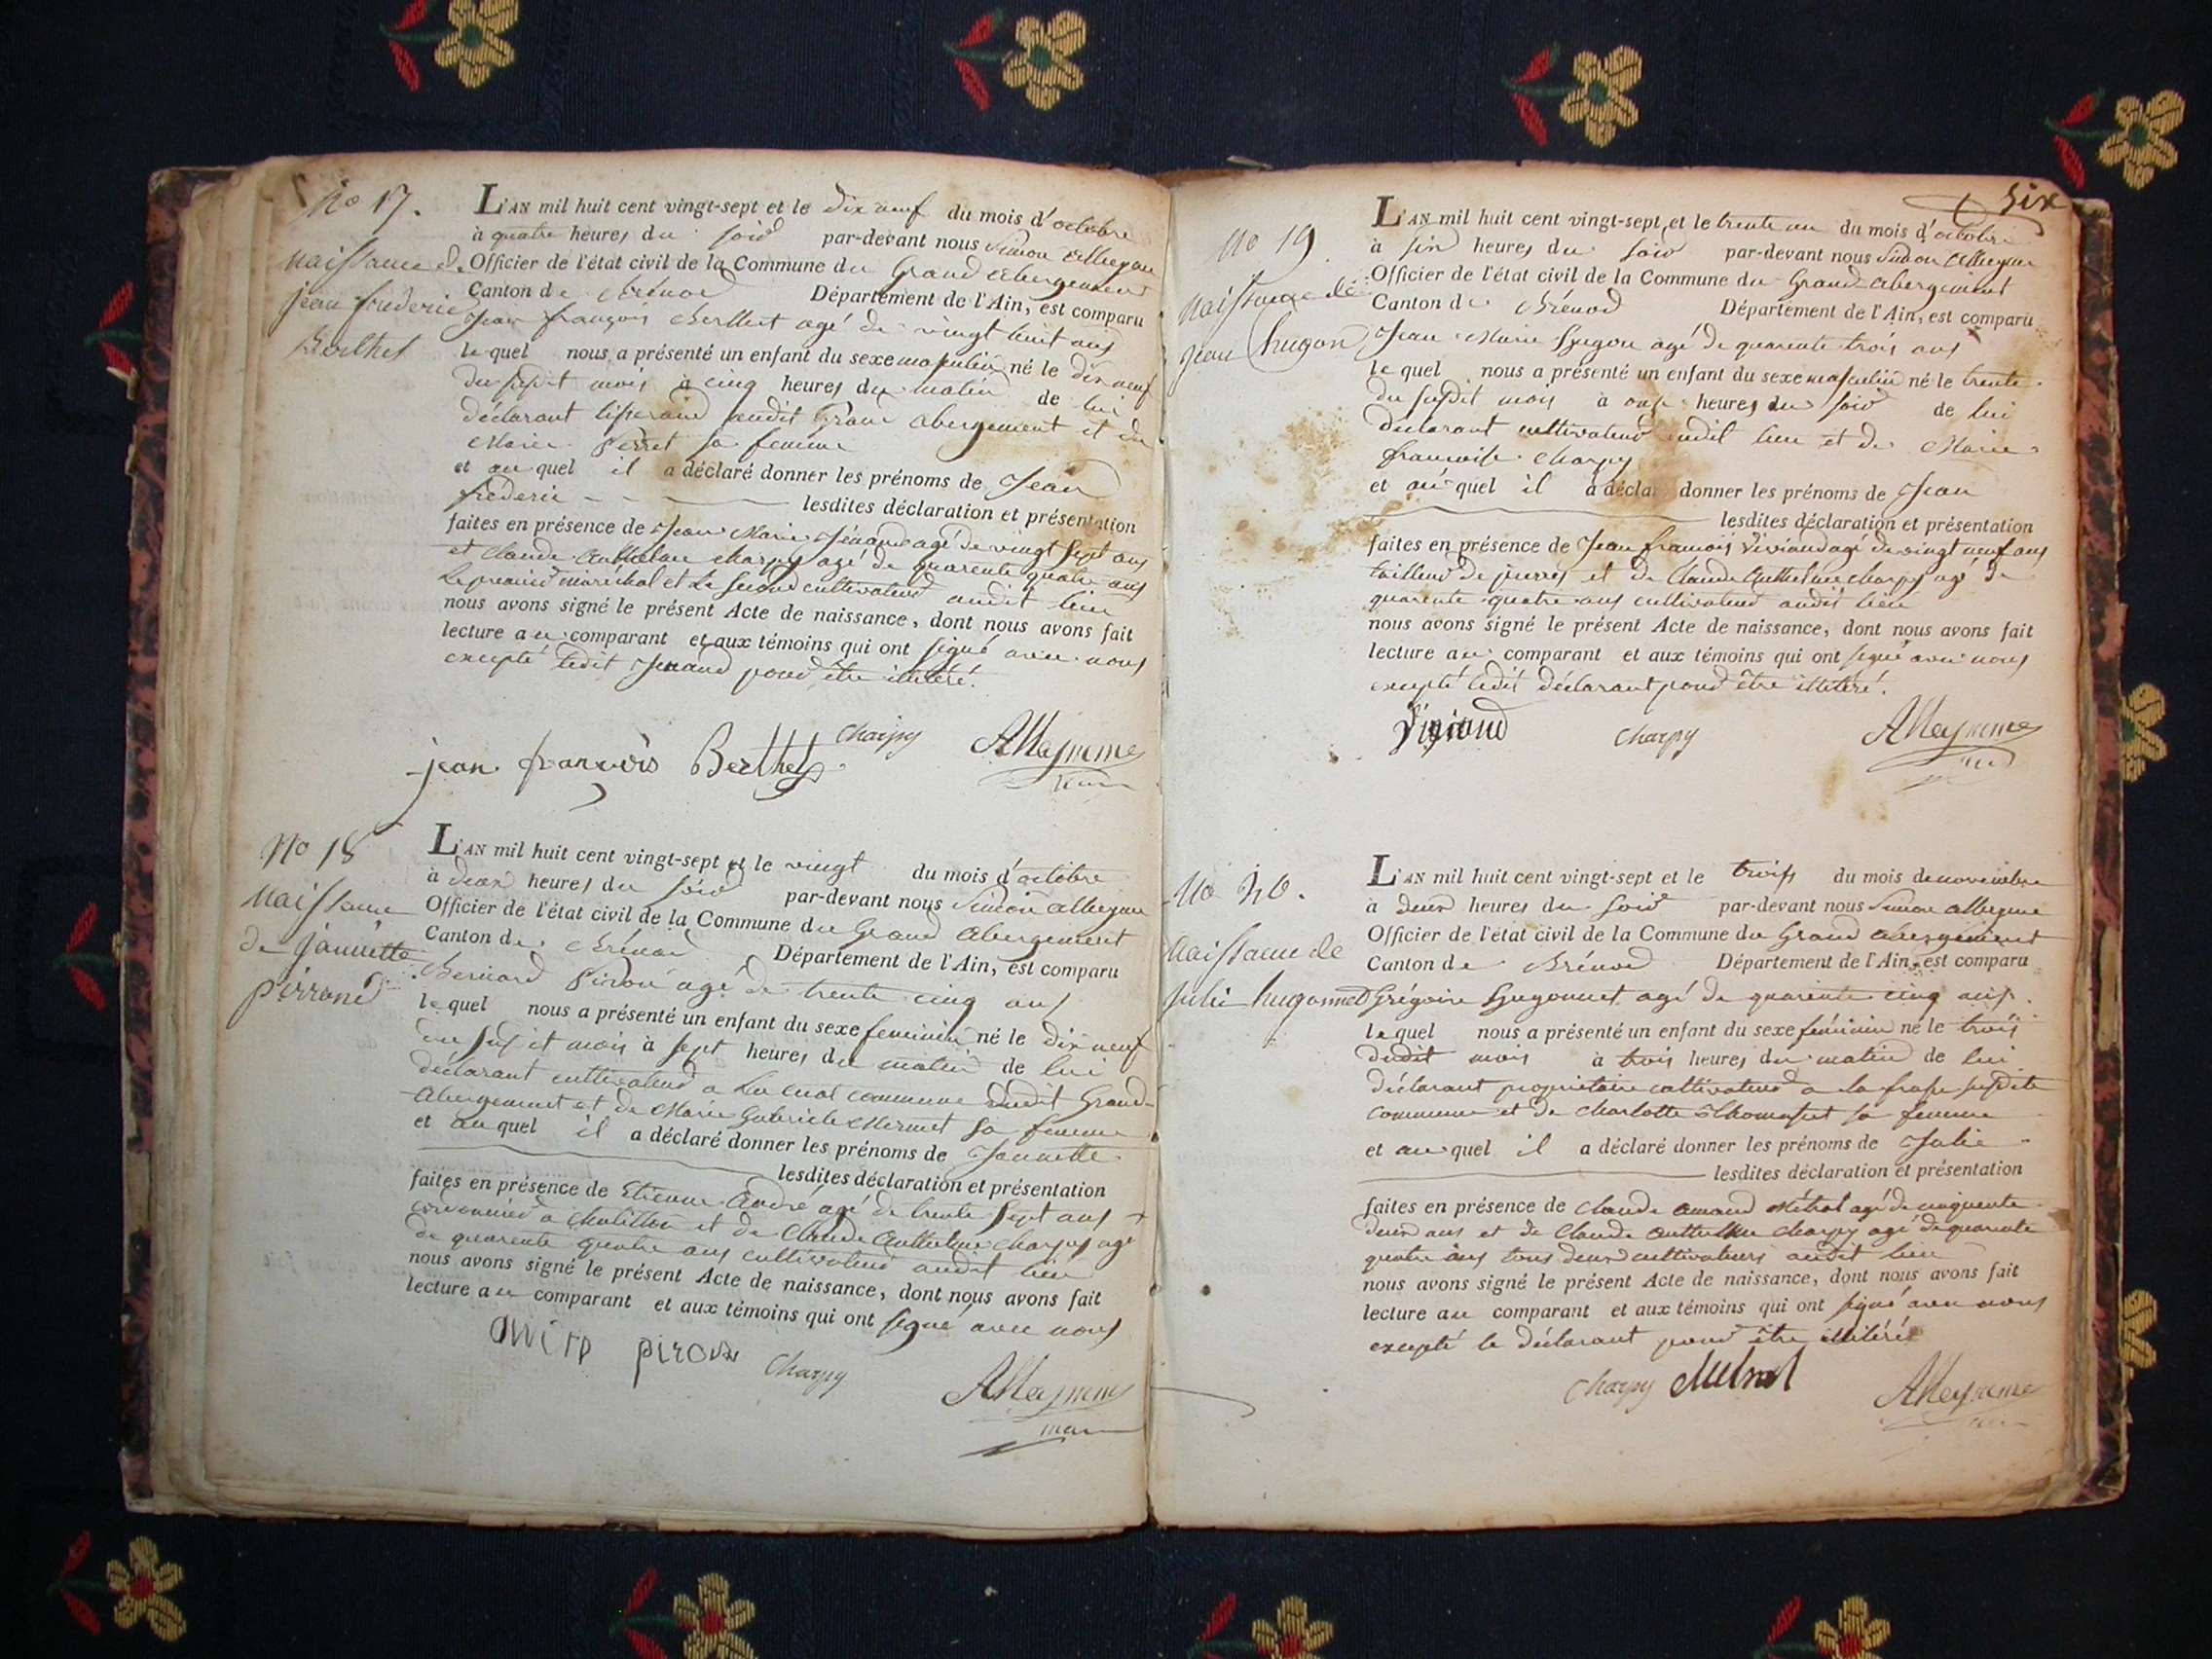 No 17.
Naissance de
jean frederic
Berthet
L'AN mil huit cent vingt-sept et le dix neuf du mois d'octobre
à quatre heures du soir par-devant nous Simon alleyme
Officier de l'état civil de la Commune du Grand abergement
Canton de Brénod Département de l'Ain, est comparu
Jean françois Berthet agé de vingt huit ans
lequel nous a présenté un enfant du sexe masculin né le dix neuf
du susdit mois à cinq heures du matin de lui
déclarant tisserand audit Grand abergement et de
Marie Perret sa femme
et au quel il a déclaré donner les prénoms de Jean
frederic lesdites déclaration et présentation
faites en présence de Jean Marie Jenand agé de vingt sept ans
et Claude Anthelme charpy agé de quarente quatre ans
le premier marechal et le second cultivateur audit lieu
nous avons signé le présent Acte de naissance, dont nous avons fait
lecture au comparant et aux témoins qui ont signé avec nous
excepté ledit Jenand pour être illiteré.
jean françois Berthet
Charpy
Alleynme
maire
No 18
Naissance
de jannette
pirroné
L'AN mil huit cent vingt-sept et le vingt du mois d'octobre
à deux heures du soir par-devant nous Simon alleyme
Officier de l'état civil de la Commune du Grand abergement
Canton de Brénod Département de l'Ain, est comparu
Bernard Piron agé de trente cinq ans
lequel nous a présenté un enfant du sexe feminin né le dix neuf
du susdit mois à sept heures du matin de lui
déclarant cultivateur a commune dudit Grand
abergement et de Marie Gabriele Mermet sa femme
et au quel il a déclaré donner les prénoms de Jannette
lesdites déclaration et présentation
faites en présence de Etienne André agé de trente sept ans
cordonnier a Chatillon et de Claude Anthelme charpy agé
de quarente quatre ans cultivateur audit lieu
nous avons signé le présent Acte de naissance, dont nous avons fait
lecture au comparant et aux témoins qui ont signé avec nous
piron
Charpy
Alleynme
maire
six
No 19
Naissance de
jean hugon
L'AN mil huit cent vingt-sept et le trente un du mois d'octobre
à six heures du soir par-devant nous Simon alleyme
Officier de l'état civil de la Commune du Grand abergement
Canton de Brénod Département de l'Ain, est comparu
Jean Marie hugon agé de quarente trois ans
lequel nous a présenté un enfant du sexe masculin né le trente
du susdit mois à onze heures du soir de lui
déclarant cultivateur audit lieu et de Marie
francoise charpy
et au quel il a déclaré donner les prénoms de Jean
lesdites déclaration et présentation
faites en présence de Jean francois Viviand agé de vingt neuf ans
tailleur de pierres et de Claude Anthelme charpy agé de
quarente quatre ans cultivateur audit lieu
nous avons signé le présent Acte de naissance, dont nous avons fait
lecture au comparant et aux témoins qui ont signé avec nous
excepté ledit déclarant pour être illiteré.
Viviand
Charpy
Alleynme
No 20.
Naissance de
Julie hugonnet
L'AN mil huit cent vingt-sept et le trois du mois de novembre
à deux heures du soir par-devant nous Simon alleyme
Officier de l'état civil de la Commune du Grand abergement
Canton de Brénod Département de l'Ain, est comparu
Grégoire hugonnet agé de quarente cinq ans
lequel nous a présenté un enfant du sexe féminin né le trois
dudit mois à trois heures du matin de lui
déclarant proprietaire cultivateur a la susdite
commune et de Charlotte Thomasset sa femme
et au quel il a déclaré donner les prénoms de Julie
lesdites déclaration et présentation
faites en présence de Claude amand Métral agé de cinquente
deux ans et de Claude Anthelme Charpy agé de quarente
quatre ans tous deux cultivateurs audit lieu
nous avons signé le présent Acte de naissance, dont nous avons fait
lecture au comparant et aux témoins qui ont signé avec nous
excepté le déclarant pour être illiteré
Charpy
Metral
Alleynme